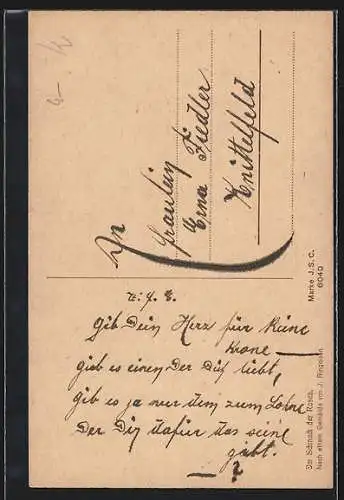 An
Fräulein
Erna Fiedler
Knittelfeld
Gib Dein Herz für keine
Krone —
gieb es einen Der Dich liebt,
gib es ja nur dem zum Lohne
Der Dir dafür das seine
gibt.
Marke J.S.C.
6049
Der Schmuck der Rosen.
Nach einem Gemälde von J.